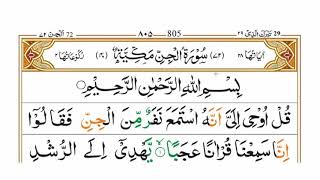 الجن ٧٢ 72 ٨٠٥ 805 تبٰرك الذي ٢٩ 29
اٰيَاتُهَا ٢٨ (٧٢) سُوْرَةُ الْجِنِّ مَكِّيَّةٌ (٤٠) رُكُوْعَاتُهَا ٢
بِسْمِ اللّٰهِ الرَّحْمٰنِ الرَّحِيْمِ
قُلْ اُوْحِيَ اِلَيَّ اَنَّهُ اسْتَمَعَ نَفَرٌ مِّنَ الْجِنِّ فَقَالُوْٓا
اِنَّا سَمِعْنَا قُرْاٰنًا عَجَبًا ۙ يَّهْدِيْٓ اِلَى الرُّشْدِ